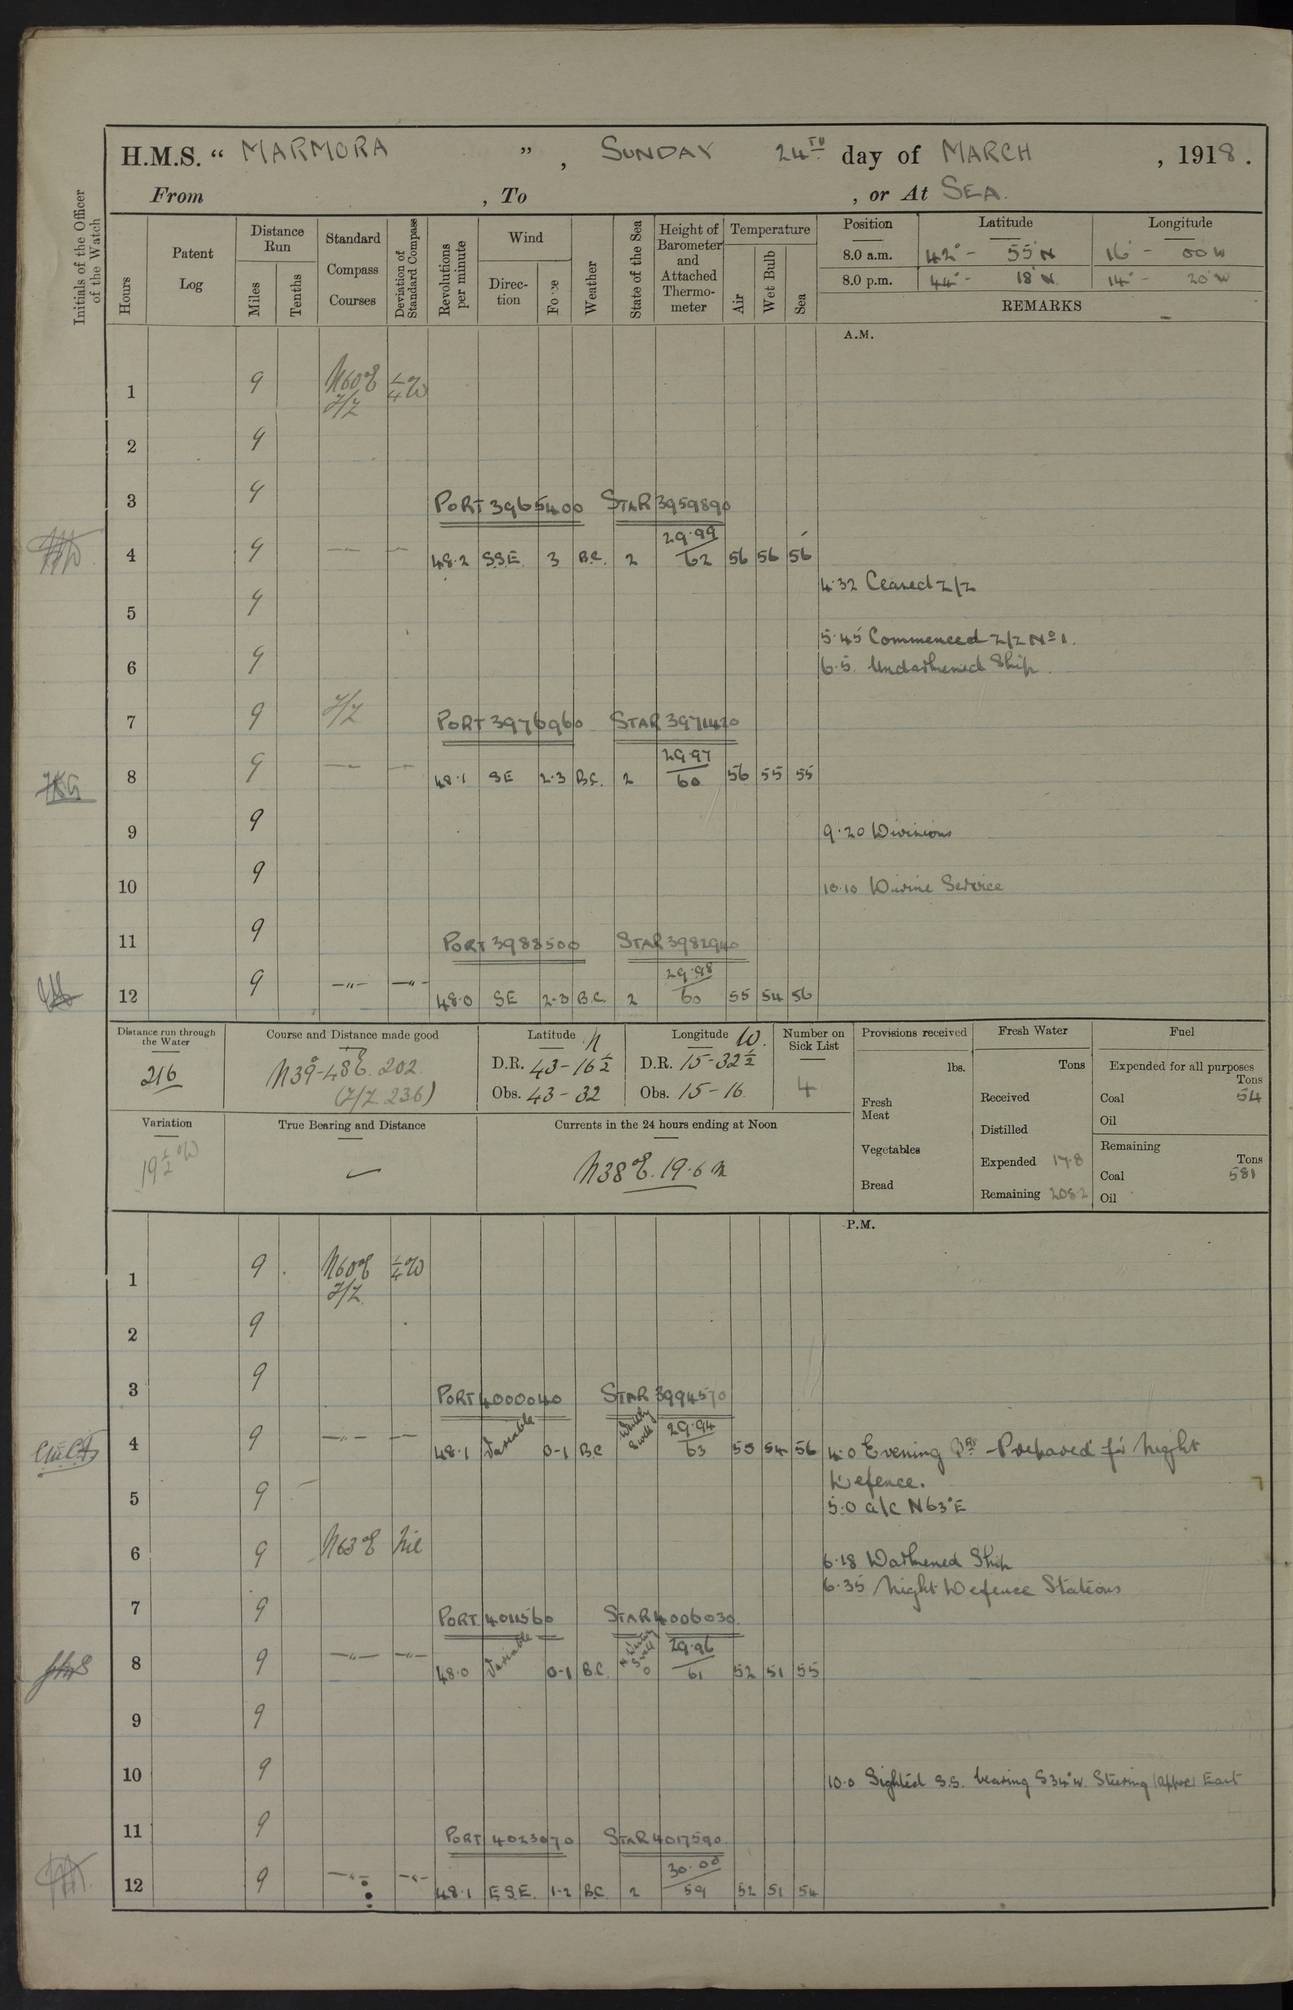 H.M.S. “ MARMORA ” , SUNDAY 24TH day of MARCH , 1918 .
From , To , or At SEA.
Initials of the Officer of the Watch
Hours
Patent Log
Distance Run
Miles
Tenths
Standard Compass Courses
Deviation of Standard Compass
Revolutions per minute
Wind
Direc-tion
Force
Weather
State of the Sea
Height of Barometer and Attached Thermo-meter
Temperature
Air
Wet Bulb
Sea
Position Latitude Longitude
8.0 a.m. 42° - 55' N 16° - 00 W
8.0 p.m. 44° - 18' N 14° - 20' W
REMARKS
A.M.
1 9 N60°E ¼W
Z/Z
2 9
3 9 PORT 3965400 STAR 3959890
4 9 —〃— —〃— 48.2 S.S.E. 3 B.C. 2 29.99/62 56 56 56
4.32 Ceased Z/Z
5 9
5.45 Commenced Z/Z No 1.
6 9 6.5 Undarkened Ship.
7 9 Z/Z PORT 3976960 STAR 3971420
8 9 —〃— —〃— 48.1 SE 2.3 B.C. 2 29.97/60 56 55 55
9 9 9.20 Divisions
10 9 10.10 Divine Service
11 9 PORT 3988500 STAR 3982940
12 9 —〃— —〃— 48.0 SE 2-3 B.C. 2 29.98/60 55 54 56
Distance run through the Water
216
Course and Distance made good
N39°-48'E. 202
(Z/Z 236)
Latitude N
D.R. 43-16½
Obs. 43-32
Longitude W.
D.R. 15-32½
Obs. 15-16
Number on Sick List
4
Provisions received
lbs.
Fresh Meat
Vegetables
Bread
Fresh Water
Tons
Received
Distilled
Expended 17.8
Remaining 208.2
Fuel
Expended for all purposes
Tons
Coal 54
Oil
Remaining
Tons
Coal 581
Oil
Variation
19½°W
True Bearing and Distance
Currents in the 24 hours ending at Noon
N38°E. 19.6 m
P.M.
1 9 N60°E ¼W
Z/Z
2 9
3 9 PORT 4000040 STAR 3994570
4 9 —〃— —〃— 48.1 Variable 0-1 B.C. Swell 29.94/63 55 54 56 4.0 Evening Qrs - Prepared for Night
Defence.
5 9 5.0 a/c N63°E
6 9 N63°E Nil 6.18 Darkened Ship
6.35 Night Defence Stations
7 9 PORT 4011560 STAR 4006030
8 9 —〃— —〃— 48.0 Variable 0-1 B.C. Swell 0 29.96/61 52 51 55
9 9
10 9 10.0 Sighted S.S. bearing S34°W. Steering (approx) East
11 9 PORT 4023070 STAR 4017590
12 9 —〃— —〃— 48.1 E.S.E. 1-2 B.C. 2 30.00/59 52 51 54